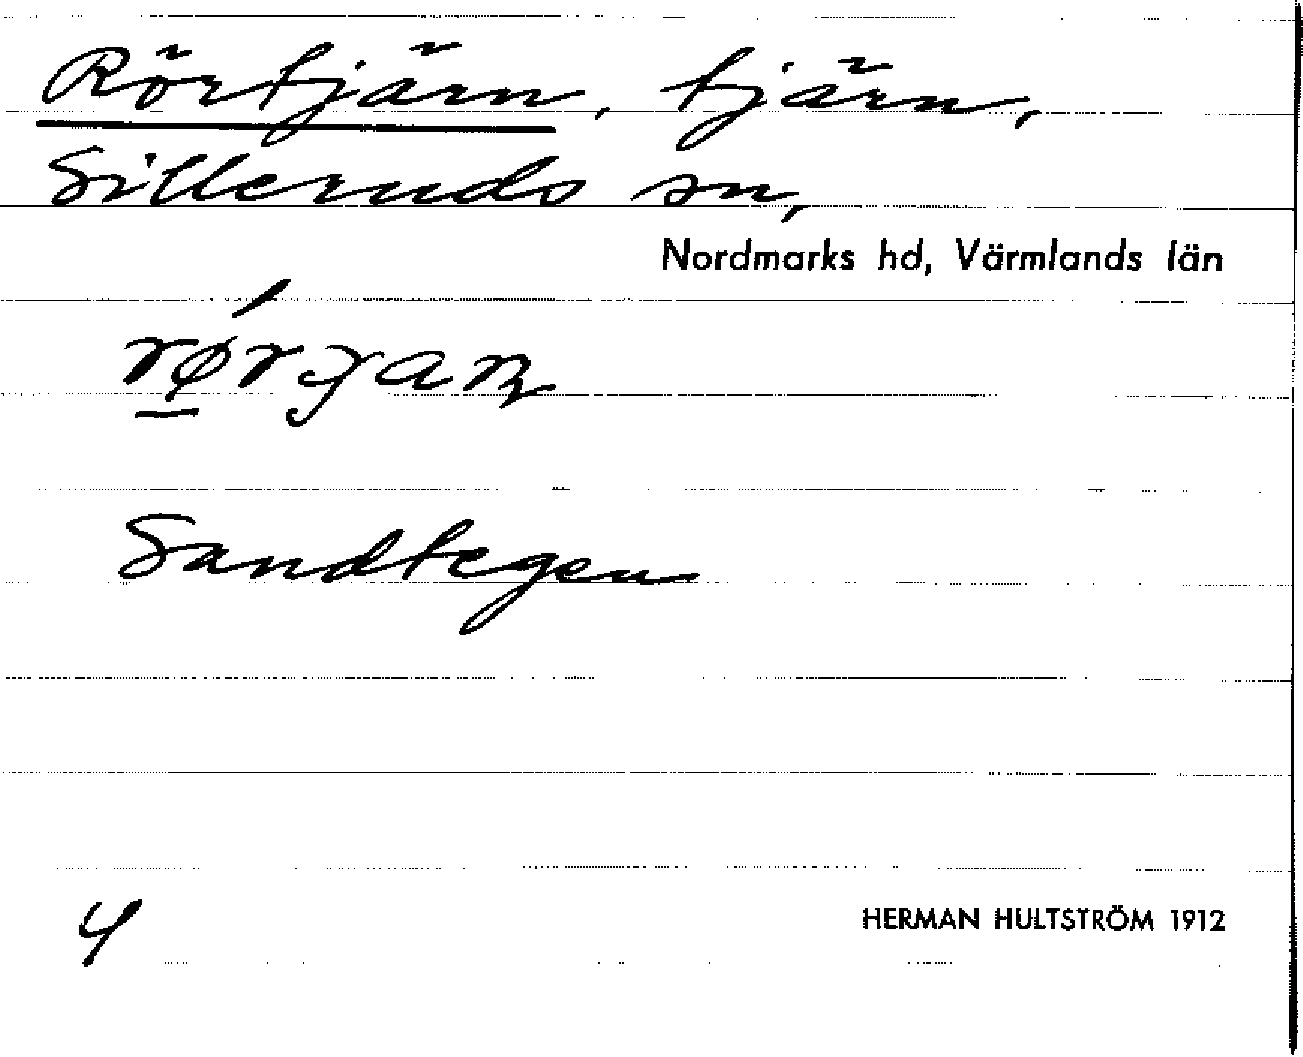 Rörtjärn, tjärn,
Silleruds sn,
Nordmarks hd, Värmlands län
Sandtegen
4
HERMAN HULTSTRÖM 1912